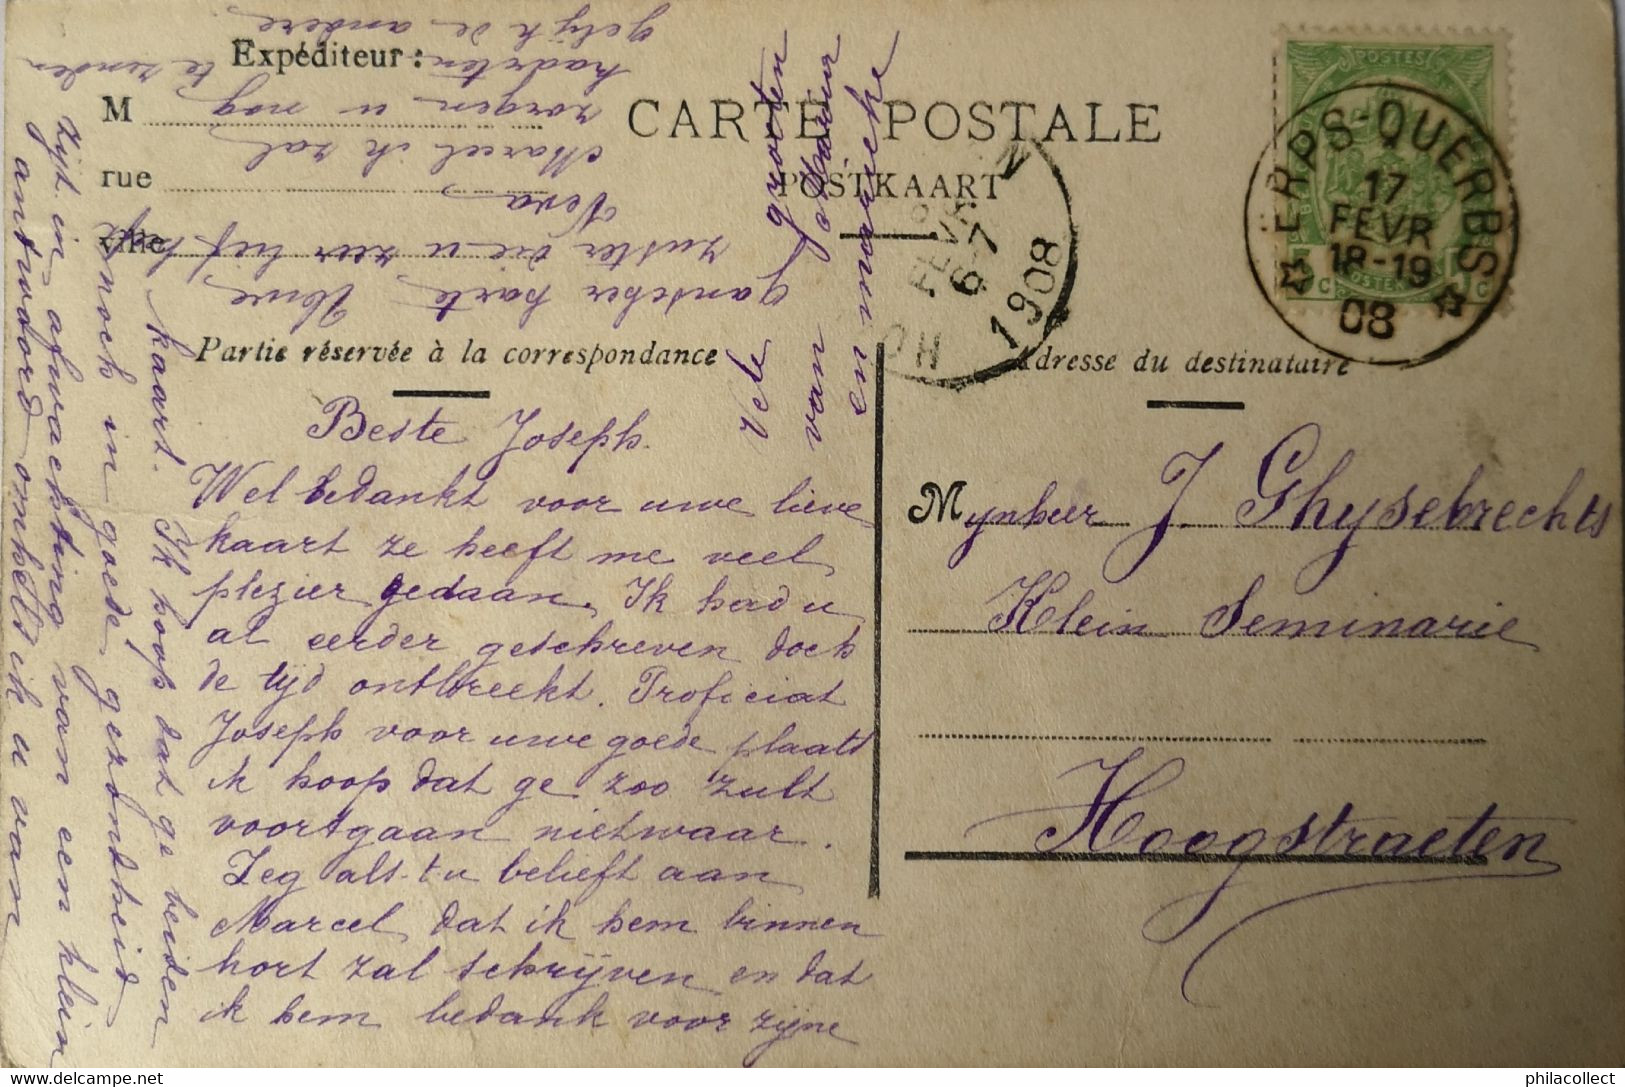 Expéditeur :
M
rue
ville
CARTE POSTALE
POSTKAART
ERPS-QUERBS
17
FEVR
18-19
08
POSTES
HO
FEVR
6-7
1908
N
Partie réservée à la correspondance
Adresse du destinataire
Beste Joseph.
Wel bedankt voor uwe lieve
kaart ze heeft me veel
plezier gedaan. Ik had u
al eerder geschreven doch
de tijd ontbreekt. Proficiat
Joseph voor uwe goede plaats
ik hoop dat ge zoo zult
voortgaan nietwaar.
Zeg als-t u belieft aan
Marcel, dat ik hem binnen
kort zal schrijven en dat
ik hem bedank voor zijne
kaart. Ik hoop dat ge beiden
noch in goede gezondheid
zijt in afwachting van een klein
antwoord omhels ik u van
ganscher harte, Uwe
zuster die u zeer lief
Vera
Marcel ik zal
zorgen u nog
kaarten te zenden
gelijk de andere.
Vele grooten
van
en mieke
Mynheer J. Ghysebrechts
Klein Seminarie
Hoogstraeten
http://www.delcampe.net
philacollect